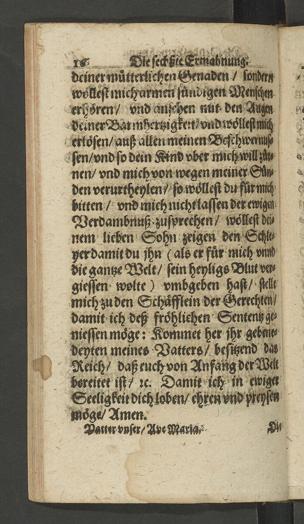 16 Die sechste Ermahnung.
deiner mütterlichen Genaden / sondern
wöllest mich armen sündigen Menschen
erhören / vnd ansehen mit den Augen
deiner Barmhertzigkeit / vnd wöllest mich
erlösen / auß allen meinen Beschwernus-
sen / vnd so dein Kind vber mich will zür-
nen / vnd mich von wegen meiner Sün-
den verurtheylen / so wöllest du für mich
bitten / vnd mich nicht lassen der ewigen
Verdambnuß zusprechen / wöllest dei-
nem lieben Sohn zeigen den Schle-
yer damit du jhn (als er für mich vnnd
die gantze Welt / sein heyligs Blut ver-
giessen wolte) vmbgeben hast / stelle
mich zu den Schäfflein der Gerechten /
damit ich deß fröhlichen Sententz ge-
niessen möge: Kommet her jhr gebene-
deyten meines Vatters / besitzend das
Reich / daß euch von Anfang der Welt
bereitet ist / ꝛc. Damit ich in ewiger
Seeligkeit dich loben / ehren vnd preysen
möge / Amen.
Vatter vnser / Aue Maria. Die